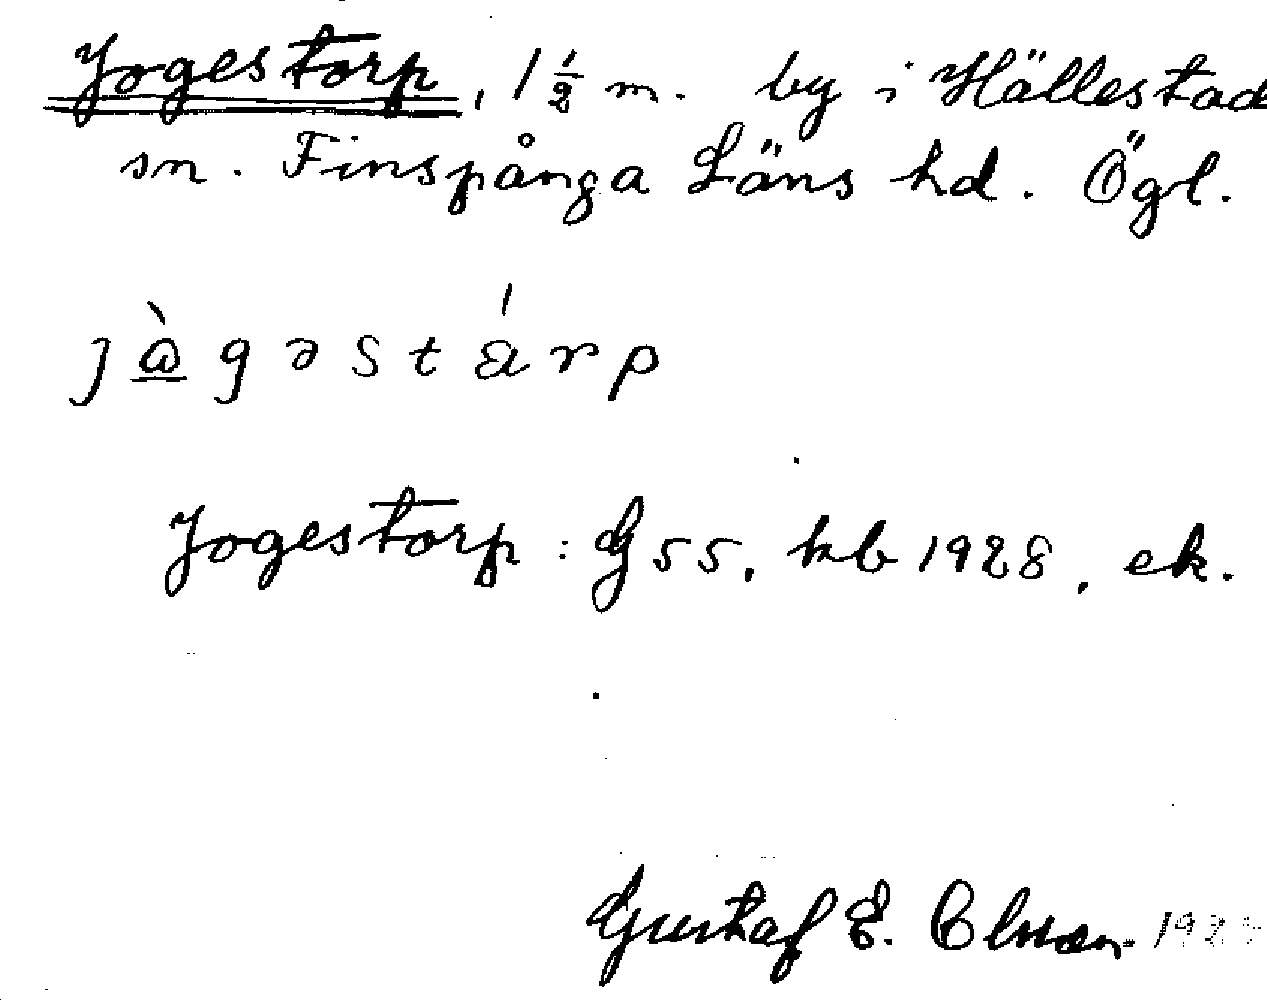 Jogestorp, 1 1/2 m. by i Hällestad
sn. Finspånga Läns hd. Ögl.
jàgəstárp
Jogestorp: G 55, kb 1928, ek.
Gustaf E. Olsson